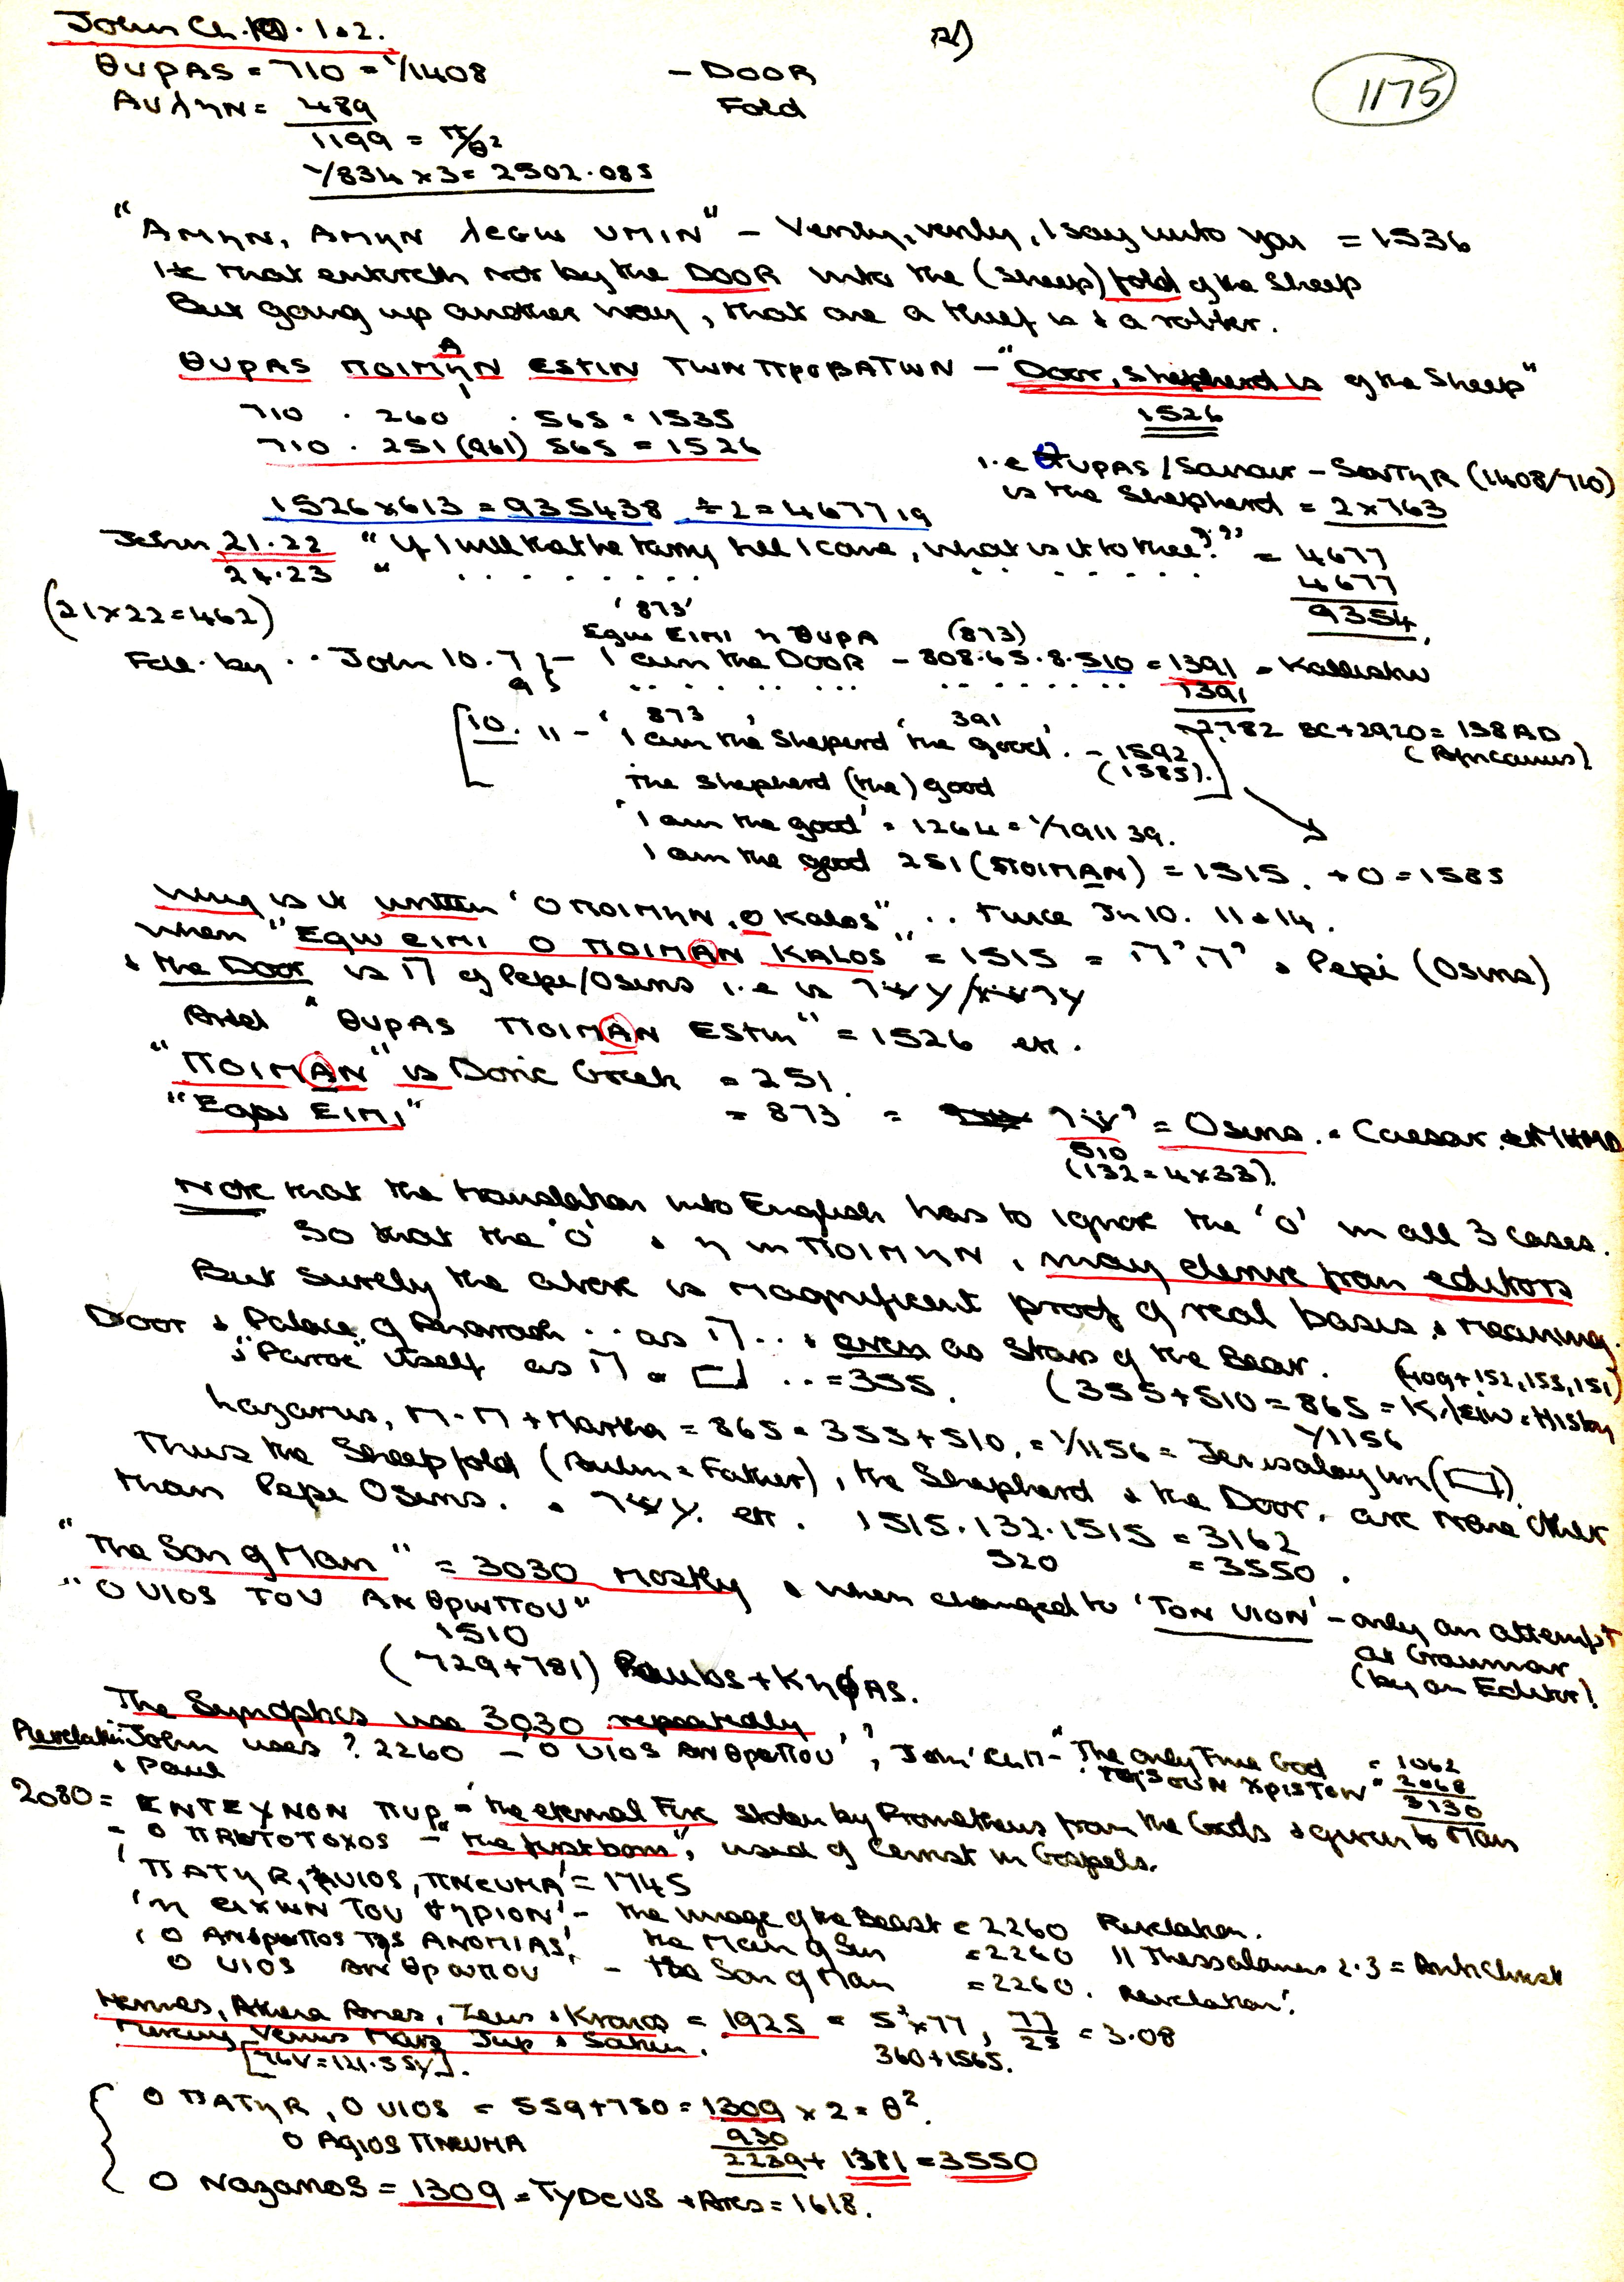 John Ch. 10. 1 & 2.
21)
1175
θυρΑS = 710 = 1/1408 - DOOR
ΑυληΝ = 489 Fold
1199 = π/θ²
1/834 x 3 = 2502.085
"ΑΜηΝ, ΑΜηΝ λεGω υΜΙΝ" - Verily, verily, I say unto you = 1536
He that entereth not by the DOOR into the (sheep) fold of the Sheep
But going up another way, that one a thief is & a robber.
Α
θυρΑS ΠΟΙΜηΝ ESTIN ΤωΝ ΠρΟβΑΤωΝ - "Door, Shepherd is of the Sheep"
710 . 260 . 565 = 1535 1526
710 . 251 (961) 565 = 1526
i.e θυρΑS / Saviour - SωΤηR (1408/710)
is the Shepherd = 2 x 763
1526 x 613 = 935438 ÷ 2 = 467719
John 21.22 "If I will that he tarry till I come, what is it to thee?" = 4677
21.23 " 4677
(21 x 22 = 462) 9354
'873'
Εgω ΕΙΜΙ η θυρΑ (873)
Foll. by .. John 10. 7 } - I am the DOOR - 808.65.8.510 = 1391 = Kallistw
9 } 1391
2782 BC + 2920 = 138 AD
(Africanus)
873 391
[10. 11 - 'I am the Sheperd' 'the good'. - 1592
The Shepherd (the) good (1585).]
'I am the good' = 1264 = 1/791139.
I am the good 251 (ΠΟΙΜΑΝ) = 1515. + 0 = 1585
Why is it written 'Ο ΠΟΙΜηΝ, Ο Καλοs" .. twice Jn 10. 11 & 14.
When "Εgω ειΜι Ο ΠΟΙΜΑΝ ΚΑLΟS" = 1515 = & Pepi (Osiris)
& the Door is of Pepi/Osiris i.e is
And "θυρΑS ΠΟΙΜΑΝ Εstin" = 1526 etc.
"ΠΟΙΜΑΝ" is Doric Greek = 251.
"Εgω ΕΙΜι" = 873 = = Osiris. = Caesar.
510
(132 = 4 x 33).
Note that the translation into English has to ignore the 'Ο' in all 3 cases.
So that the 'Ο' & η in ΠΟΙΜηΝ, may derive from editors
But surely the above is magnificent proof of real bases, & meaning.
Door & Palace, of Pharaoh .. as .. & even as Stars of the Bear.
& "Paroe" itself as .. = 355. (355 + 510 = 865 = Kλειω = History
(409 + 152, 153, 151)
1/1156
Lazarus, M.M + Martha = 865 = 355 + 510. = 1/1156 = Jerusalaym
Thus the Sheepfold (Aulin = Father), the Shepherd & the Door, are none other
than Pepi Osiris. & etc. 1515.132.1515 = 3162
520 = 3550.
"The Son of Man" = 3030 mostly & when changed to 'ΤΟΝ υΙΟΝ' - only an attempt
"Ο υΙΟS ΤΟυ ΑΝθρωΠΟυ" at Grammar
1510 (by an Editor)!
(729 + 781) Paulos + ΚηφΑS.
The Synoptics use 3030 repeatedly,
Revelation John uses ? 2260 - 'Ο υΙΟS ΑΝθρωΠΟυ', John Ch 17 - "The only True God = 1062
& Paul ΙηSΟυΝ ΧρΙSΤΟΝ" 2068
3130
2080 = ΕΝΤΕΧΝΟΝ Πυρ = the eternal Fire stolen by Prometheus from the Gods & given to Man
= Ο ΠRωΤΟΤΟΧΟS - "the first born", used of Christ in Gospels.
'ΠΑΤηR, υΙΟS, ΠΝευΜΑ' = 1745
'η ειχωΝ ΤΟυ θηρΙΟΝ' - the image of the Beast = 2260 Revelation.
'Ο ΑΝθρωΠΟS ΤηS ΑΝΟΜΙΑS' the Man of Sin = 2260 II Thessalonians 2.3 = AntiChrist
Ο υΙΟS ΑΝθρωΠΟυ - the Son of Man = 2260. Revelation!
Hermes, Athena Ares, Zeus & Kronos = 1925 = 5² x 77, 77/25 = 3.08
Mercury Venus Mars Jup & Saturn. 360 + 1565.
[76V = 121.55y].
Ο ΠΑΤηR, Ο υΙΟS = 559 + 750 = 1309 x 2 = θ².
Ο ΑgΙΟS ΠΝευΜΑ 930
2239 + 1311 = 3550
Ο NazarιοS = 1309 = TyDeus + Ares = 1618.